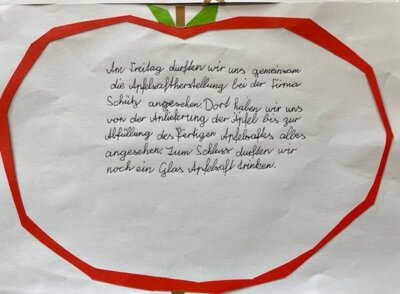 Am Freitag durften wir uns gemeinsam
die Apfelsaftherstellung bei der Firma
Schütz angesehen. Dort haben wir uns
von der Anlieferung der Äpfel bis zur
Abfüllung des fertigen Apfelsaftes alles
angesehen. Zum Schluss durften wir
noch ein Glas Apfelsaft trinken.